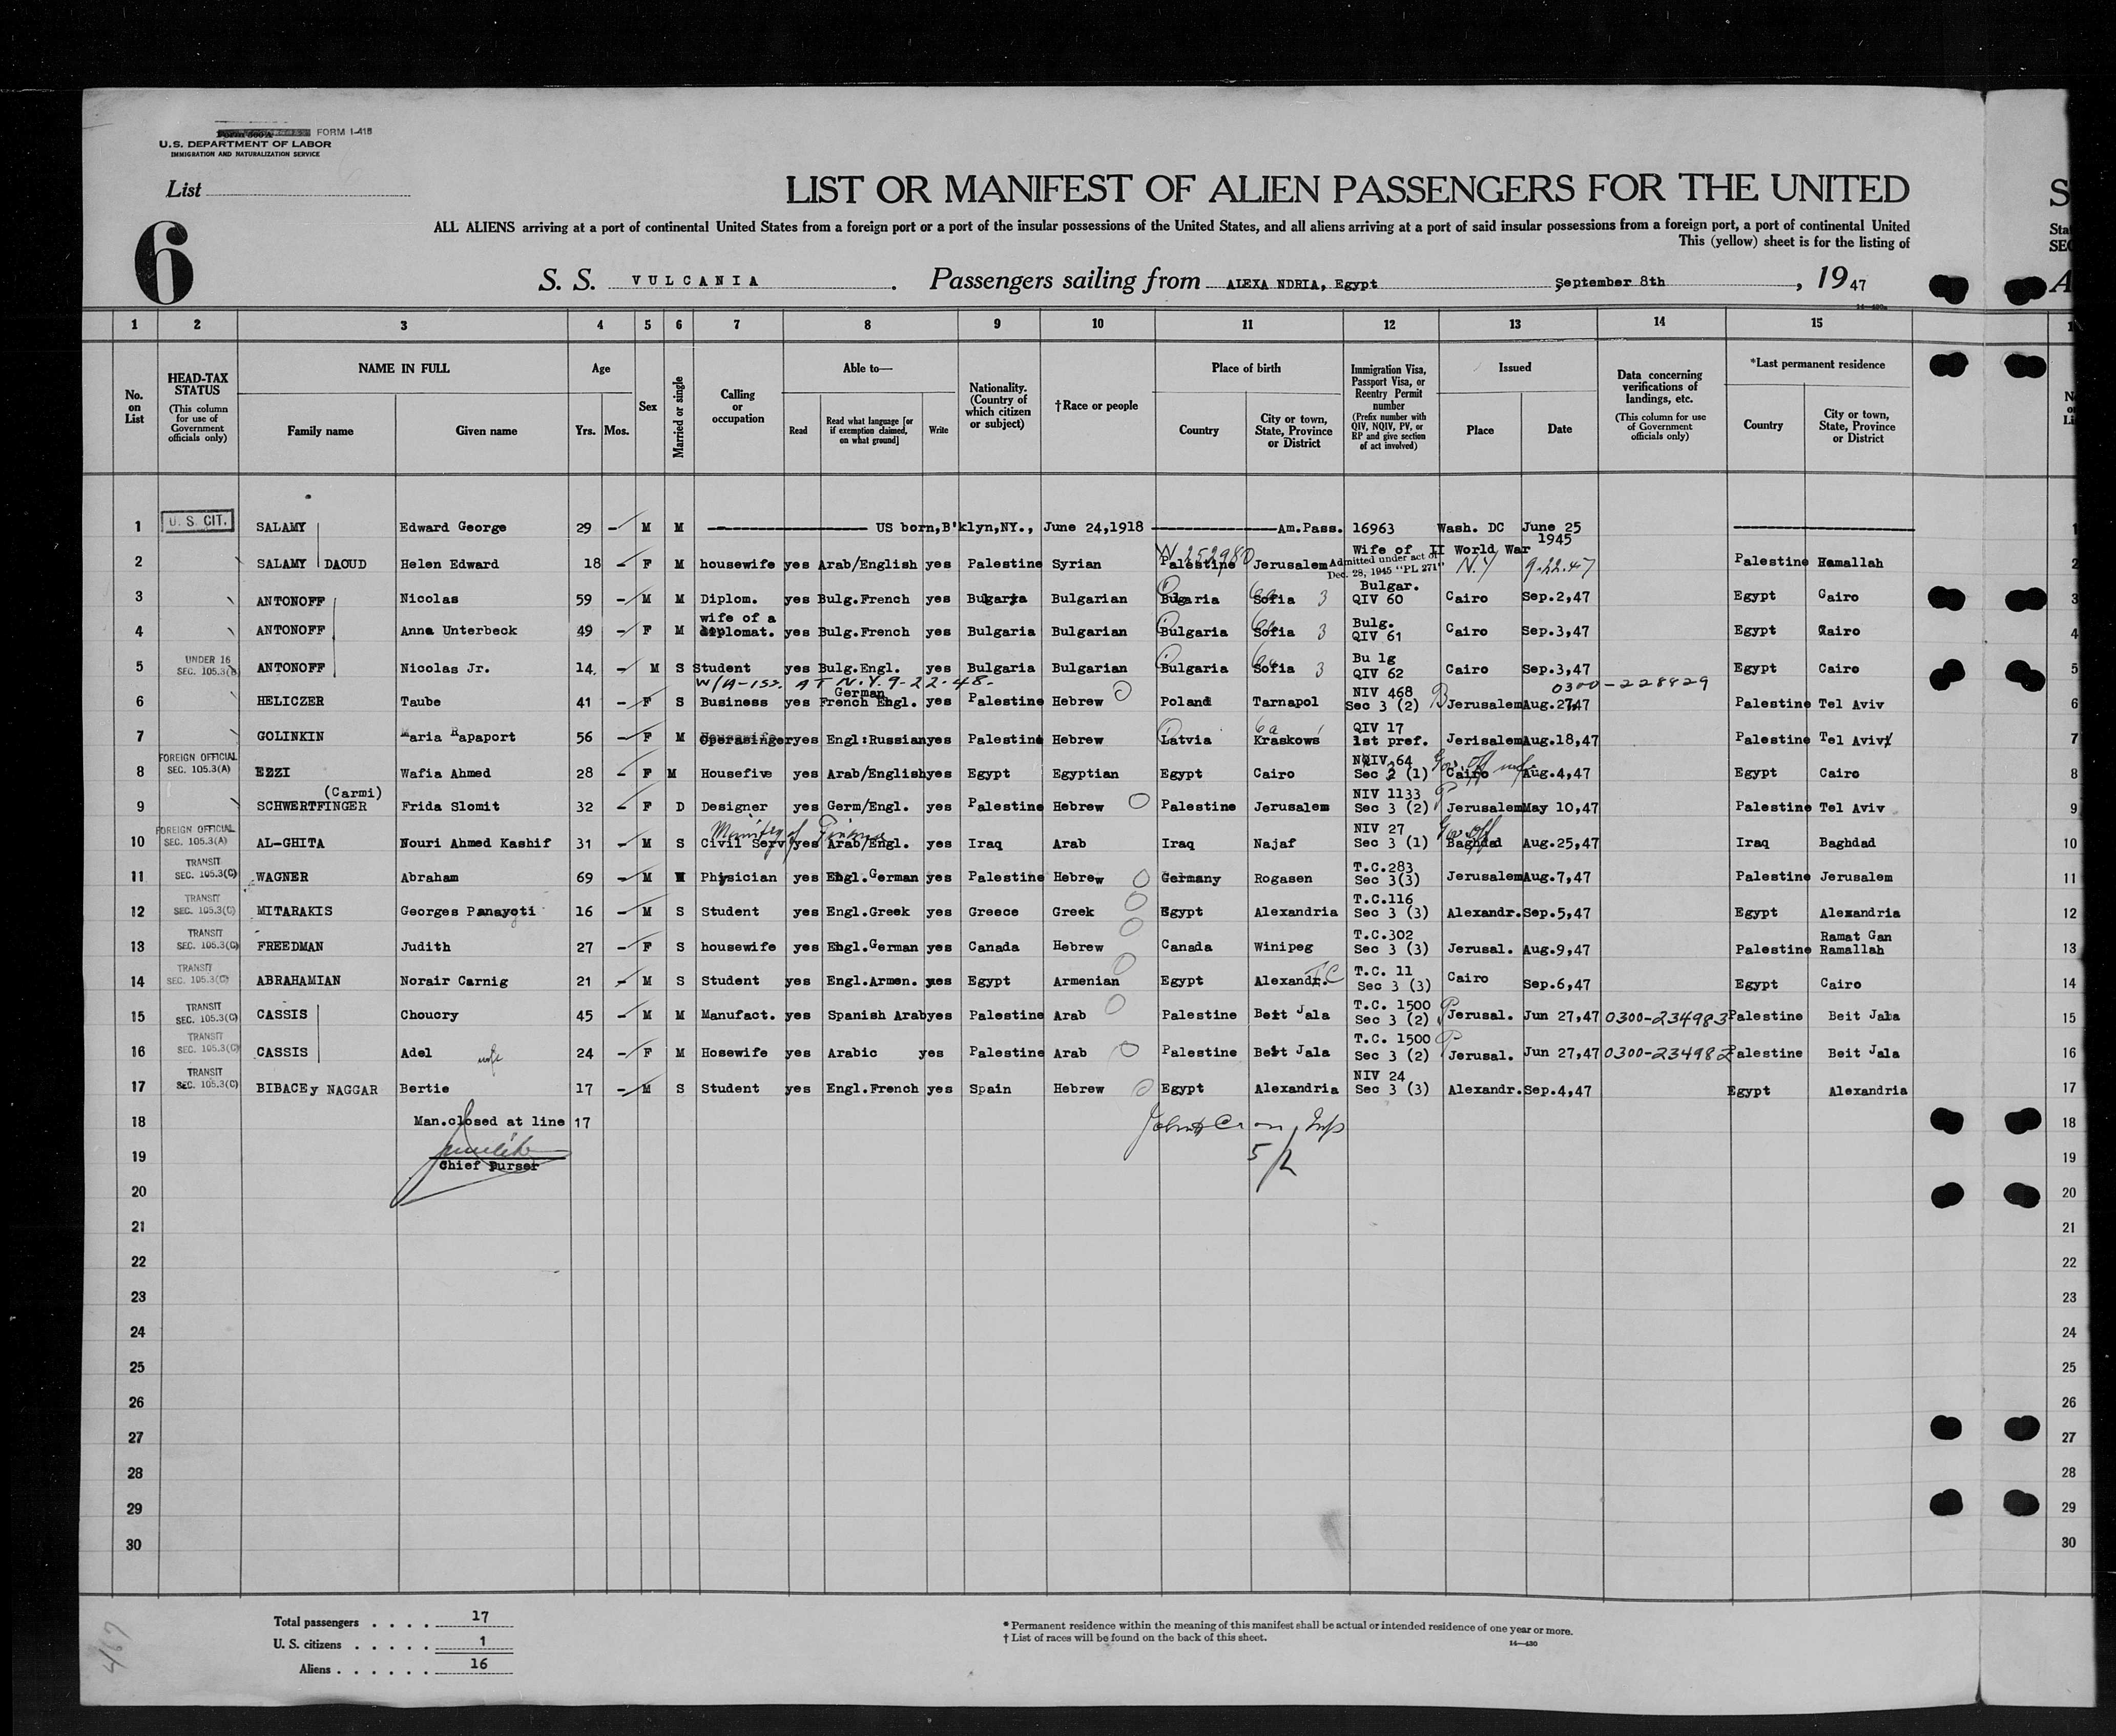 FORM I-418
U.S. DEPARTMENT OF LABOR
IMMIGRATION AND NATURALIZATION SERVICE
List
6
LIST OR MANIFEST OF ALIEN PASSENGERS FOR THE UNITED
ALL ALIENS arriving at a port of continental United States from a foreign port or a port of the insular possessions of the United States, and all aliens arriving at a port of said insular possessions from a foreign port, a port of continental United
This (yellow) sheet is for the listing of
S. S. VULCANIA. Passengers sailing from ALEXA NDRIA, Egypt September 8th, 1947
1 2 3 4 5 6 7 8 9 10 11 12 13 14 15
No. on List
HEAD-TAX STATUS (This column for use of Government officials only)
NAME IN FULL
Family name Given name
Age
Yrs. Mos.
Sex
Married or single
Calling or occupation
Able to—
Read Read what language [or if exemption claimed, on what ground] Write
Nationality. (Country of which citizen or subject)
†Race or people
Place of birth
Country City or town, State, Province or District
Immigration Visa, Passport Visa, or Reentry Permit number (Prefix number with QIV, NQIV, PV, or RP and give section of act involved)
Issued
Place Date
Data concerning verifications of landings, etc. (This column for use of Government officials only)
*Last permanent residence
Country City or town, State, Province or District
1 U. S. CIT. SALAMY Edward George 29 - M M US born,B'klyn,NY., June 24,1918 Am.Pass. 16963 Wash. DC June 25 1945
2 SALAMY DAOUD Helen Edward 18 - F M housewife yes Arab/English yes Palestine Syrian W 252980 Palestine Jerusalem Wife of II World War Admitted under act of Dec. 28, 1945 "PL 271" N.Y 9-22-47 Palestine Ramallah
3 ANTONOFF Nicolas 59 - M M Diplom. yes Bulg.French yes Bulgaria Bulgarian Bulgaria Sofia 3 Bulgar. QIV 60 Cairo Sep.2,47 Egypt Cairo
4 ANTONOFF Anna Unterbeck 49 - F M wife of a diplomat. yes Bulg.French yes Bulgaria Bulgarian Bulgaria Sofia 3 Bulg. QIV 61 Cairo Sep.3,47 Egypt Cairo
5 UNDER 16 SEC. 105.3(B) ANTONOFF Nicolas Jr. 14 - M S Student yes Bulg.Engl. yes Bulgaria Bulgarian Bulgaria Sofia 3 Bu lg QIV 62 Cairo Sep.3,47 Egypt Cairo
W/A-iss. AT N.Y. 9-22-48. 0300-228829
6 HELICZER Taube 41 - F S Business yes German French Engl. yes Palestine Hebrew Poland Tarnapol NIV 468 Sec 3 (2) Jerusalem Aug.27,47 Palestine Tel Aviv
7 GOLINKIN Maria Rapaport 56 - F M Operasinger yes Engl:Russian yes Palestine Hebrew Latvia Kraskows QIV 17 1st pref. Jerisalem Aug.18,47 Palestine Tel Aviv
8 FOREIGN OFFICIAL SEC. 105.3(A) EZZI Wafia Ahmed 28 - F M Housefive yes Arab/English yes Egypt Egyptian Egypt Cairo NQIV 64 Sec 2 (1) Cairo Aug.4,47 Egypt Cairo
9 SCHWERTFINGER (Carmi) Frida Slomit 32 - F D Designer yes Germ/Engl. yes Palestine Hebrew Palestine Jerusalem NIV 1133 Sec 3 (2) Jerusalem May 10,47 Palestine Tel Aviv
10 FOREIGN OFFICIAL SEC. 105.3(A) AL-GHITA Nouri Ahmed Kashif 31 - M S Ministry of Finance Civil Serv yes Arab/Engl. yes Iraq Arab Iraq Najaf NIV 27 Sec 3 (1) Gov. off Baghdad Aug.25,47 Iraq Baghdad
11 TRANSIT SEC. 105.3(C) WAGNER Abraham 69 - M Physician yes Engl.German yes Palestine Hebrew Germany Rogasen T.C.283 Sec 3(3) Jerusalem Aug.7,47 Palestine Jerusalem
12 TRANSIT SEC. 105.3(C) MITARAKIS Georges Panayoti 16 - M S Student yes Engl.Greek yes Greece Greek Egypt Alexandria T.C.116 Sec 3 (3) Alexandr. Sep.5,47 Egypt Alexandria
13 TRANSIT SEC. 105.3(C) FREEDMAN Judith 27 - F S housewife yes Engl.German yes Canada Hebrew Canada Winipeg T.C.302 Sec 3 (3) Jerusal. Aug.9,47 Palestine Ramat Gan Ramallah
14 TRANSIT SEC. 105.3(C) ABRAHAMIAN Norair Carnig 21 - M S Student yes Engl.Armen. yes Egypt Armenian Egypt Alexandr. T.C T.C. 11 Sec 3 (3) Cairo Sep.6,47 Egypt Cairo
15 TRANSIT SEC. 105.3(C) CASSIS Choucry 45 - M M Manufact. yes Spanish Arab yes Palestine Arab Palestine Beit Jala T.C. 1500 Sec 3 (2) Jerusal. Jun 27,47 0300-234983 Palestine Beit Jala
16 TRANSIT SEC. 105.3(C) CASSIS Adel wife 24 - F M Hosewife yes Arabic yes Palestine Arab Palestine Beit Jala T.C. 1500 Sec 3 (2) Jerusal. Jun 27,47 0300-234982 Palestine Beit Jala
17 TRANSIT SEC. 105.3(C) BIBACEy NAGGAR Bertie 17 - M S Student yes Engl.French yes Spain Hebrew Egypt Alexandria NIV 24 Sec 3 (3) Alexandr. Sep.4,47 Egypt Alexandria
18 Man.closed at line 17
19 Chief Purser
20
21
22
23
24
25
26
27
28
29
30
Total passengers . . . . 17
U. S. citizens . . . . . 1
Aliens . . . . . . 16
* Permanent residence within the meaning of this manifest shall be actual or intended residence of one year or more.
† List of races will be found on the back of this sheet.
14—430
467